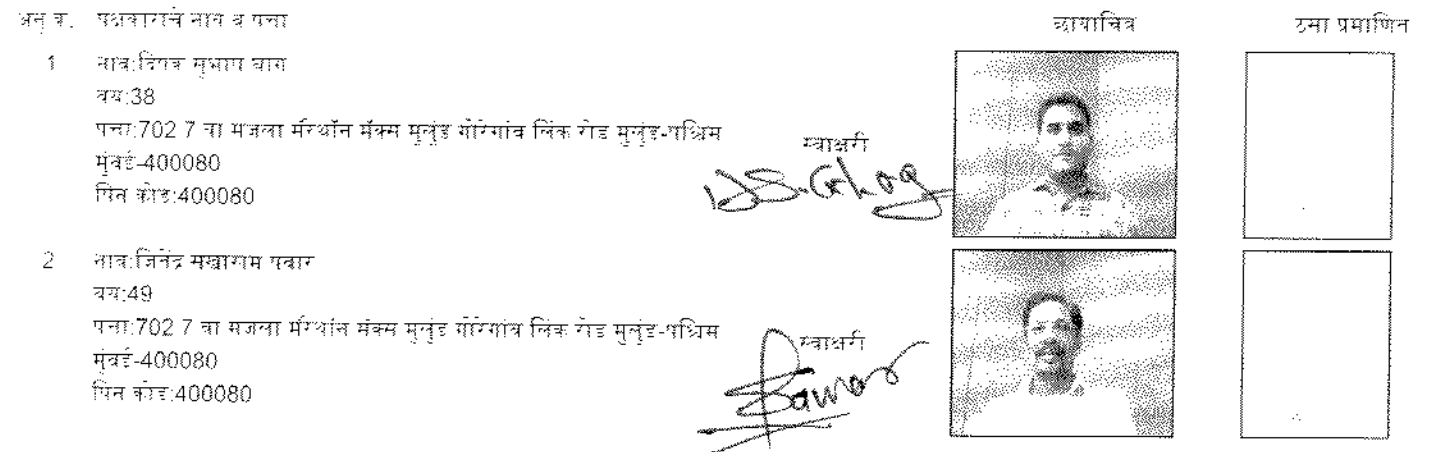 अनु क्र. पक्षकाराचे नाव व पत्ता छायाचित्र ठसा प्रमाणित
1 नाव:दिपक सुभाष घाग
वय:38
पत्ता:702 7 वा मजला मॅरेथॉन मॅक्स मुलुंड गोरेगांव लिंक रोड मुलुंड-पश्चिम
मुंबई-400080
पिन कोड:400080
स्वाक्षरी
D.S.Ghag
2 नाव:जितेंद्र सखाराम पवार
वय:49
पत्ता:702 7 वा मजला मॅरेथॉन मॅक्स मुलुंड गोरेगांव लिंक रोड मुलुंड-पश्चिम
मुंबई-400080
पिन कोड:400080
स्वाक्षरी
Pawar